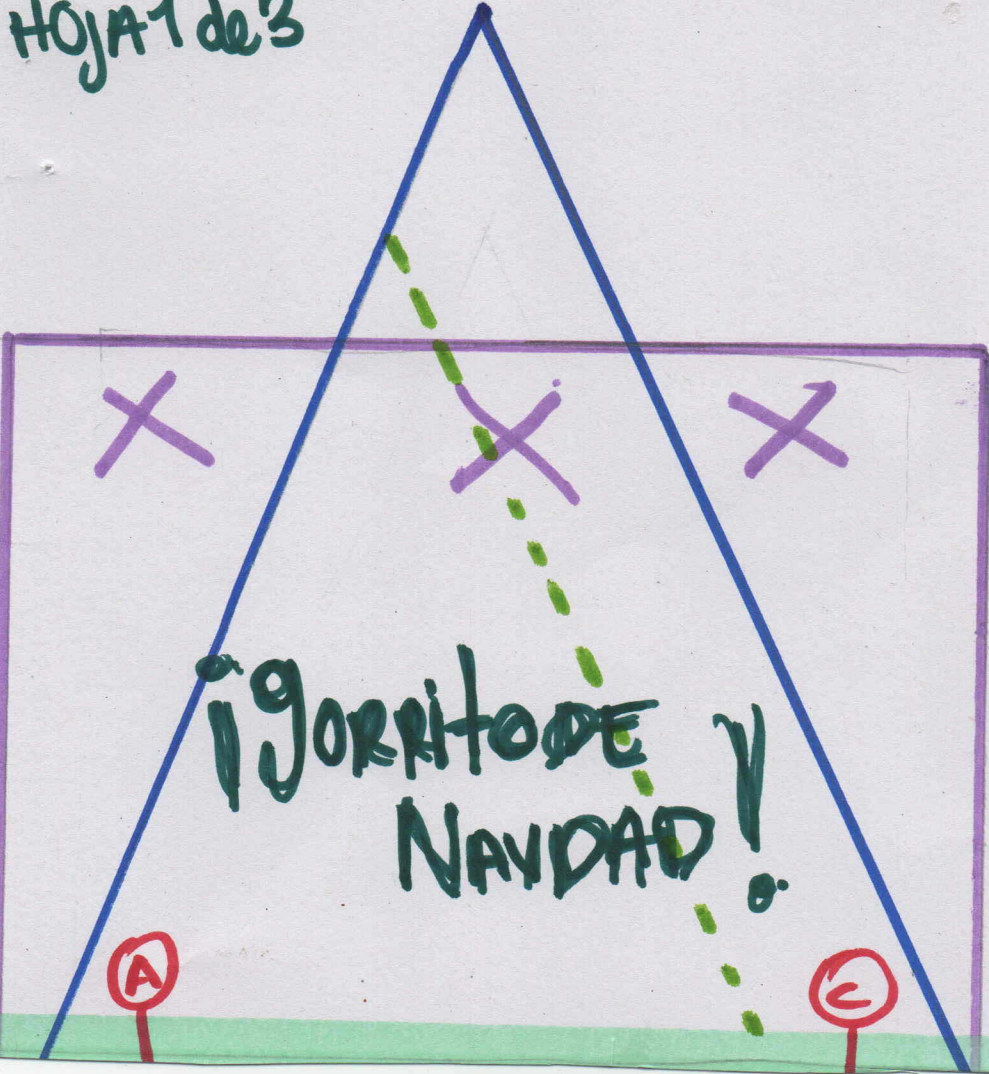 HOJA 1 de 3
¡gORRitO DE
NAVDAD!
A
C